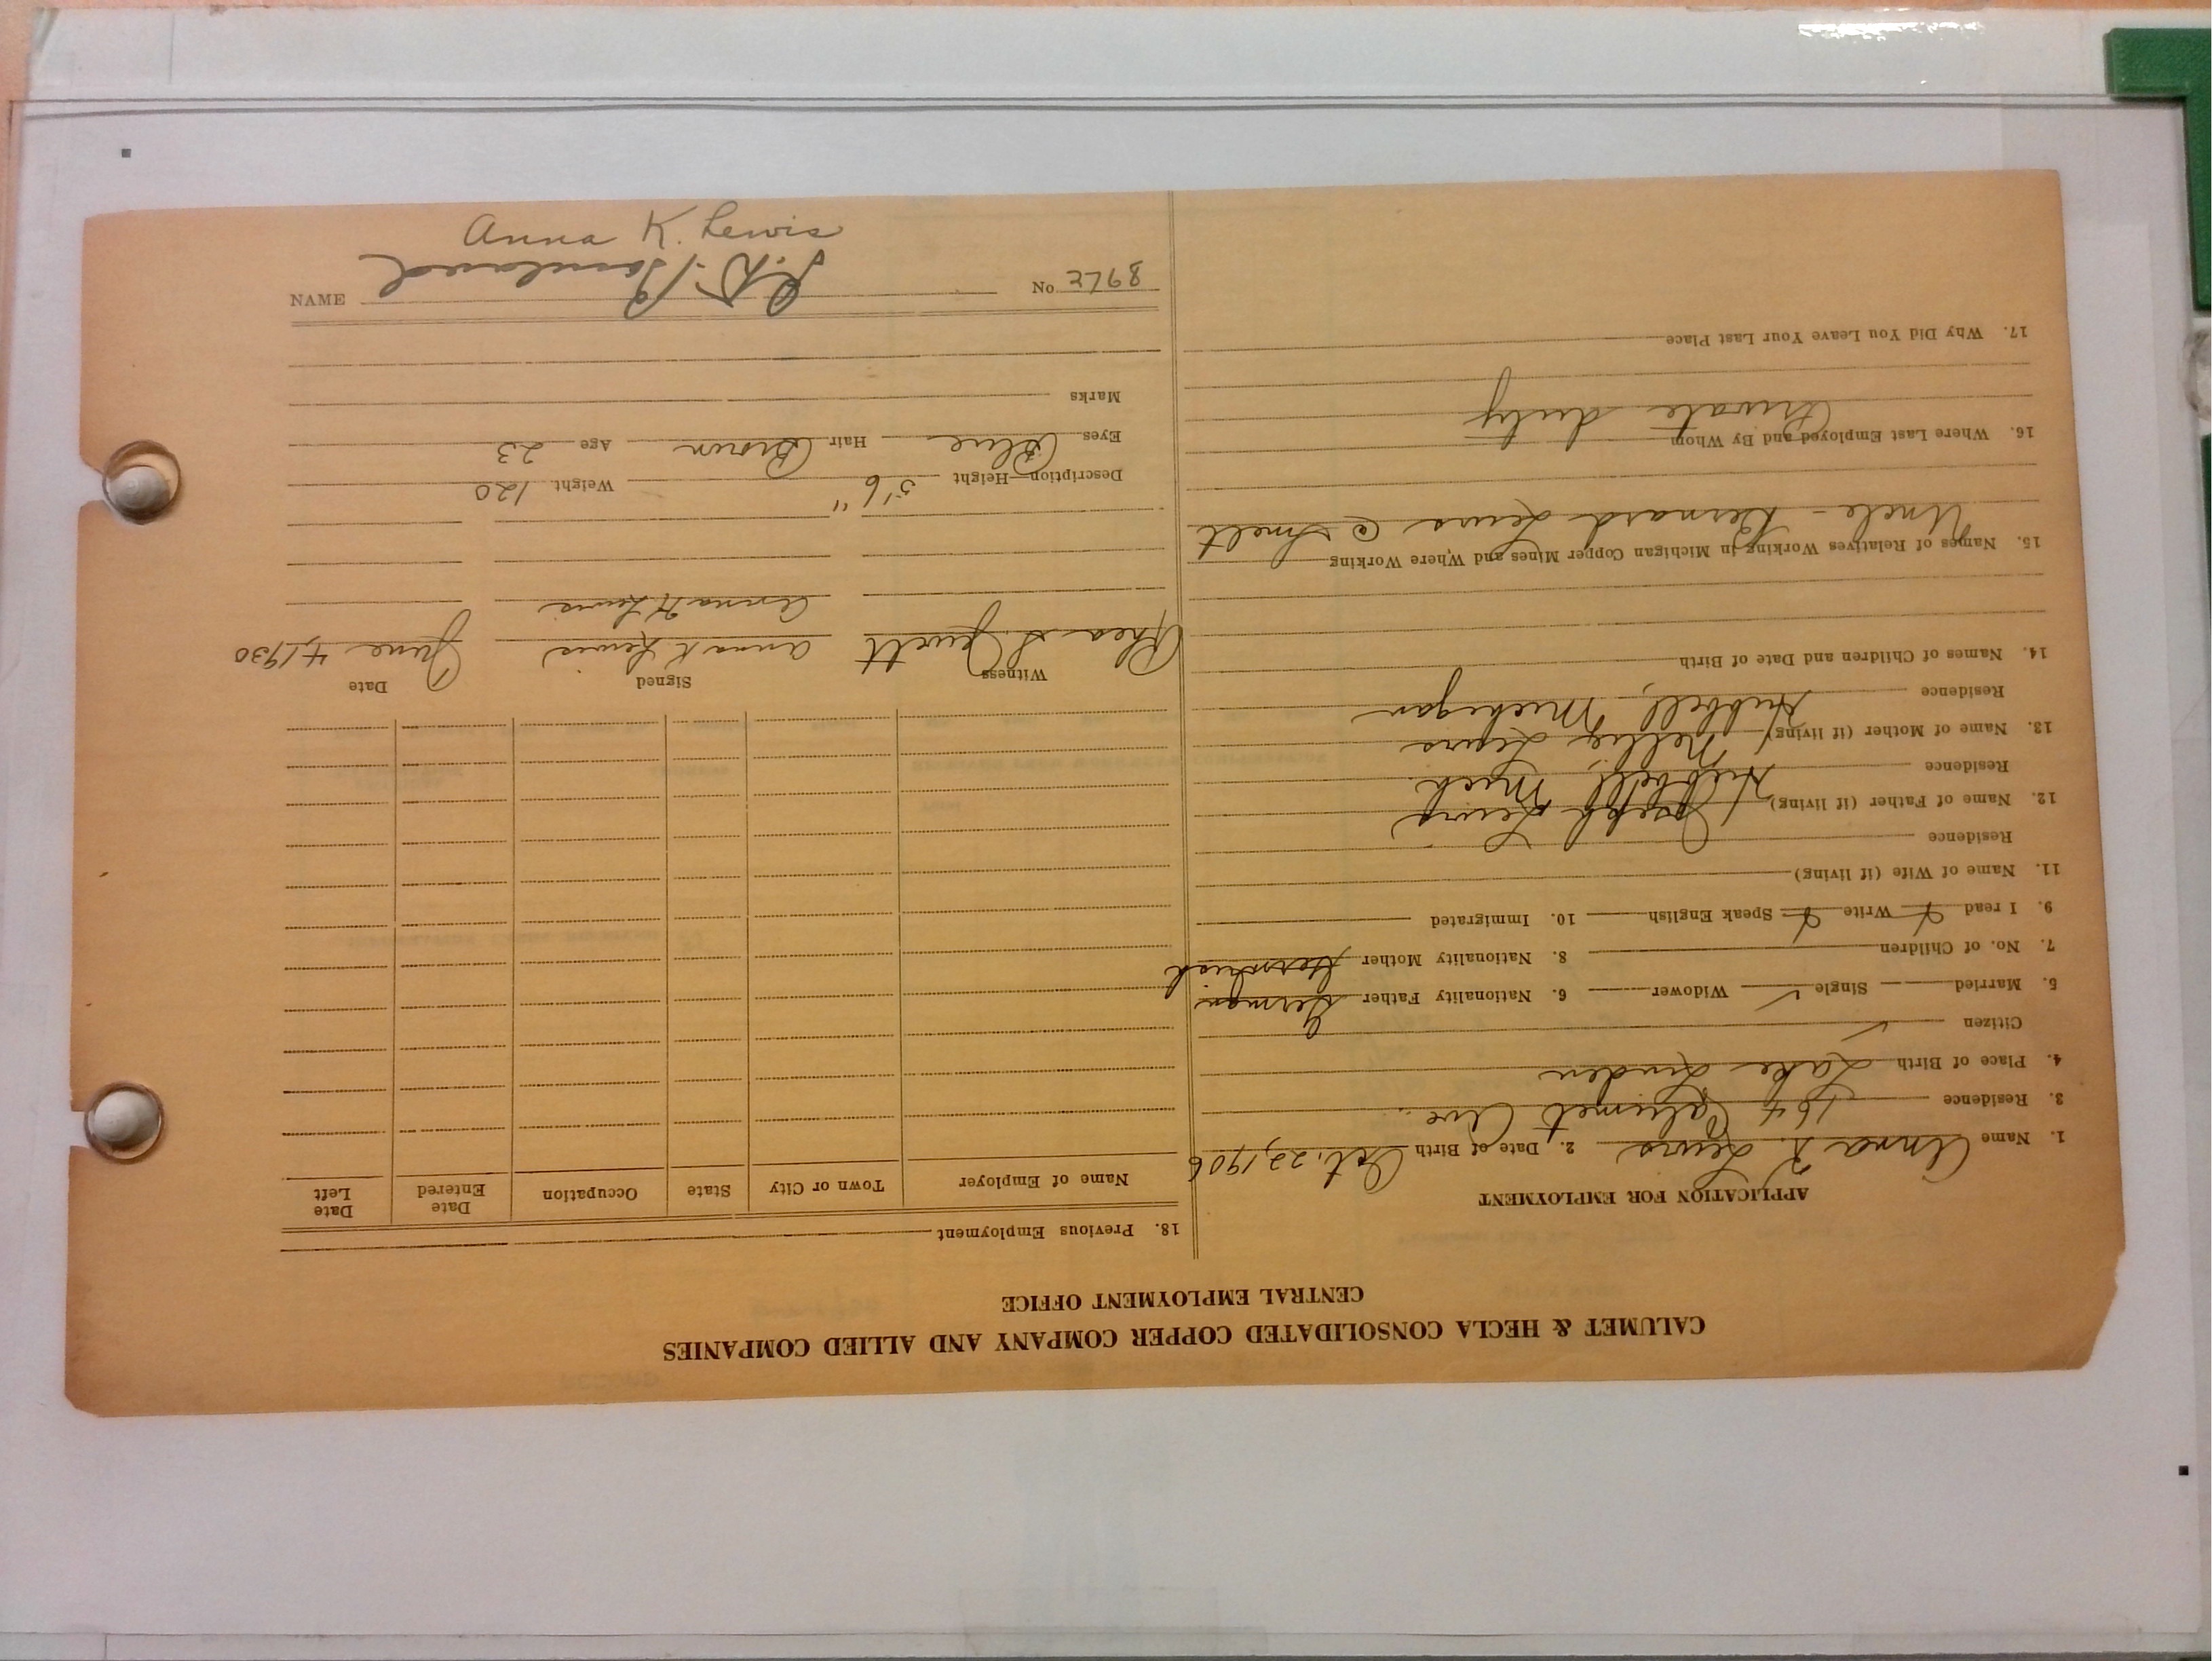 CALUMET & HECLA CONSOLIDATED COPPER COMPANY AND ALLIED COMPANIES
CENTRAL EMPLOYMENT OFFICE
APPLICATION FOR EMPLOYMENT
1. Name Anna K. Lewis 2. Date of Birth Oct. 22, 1906
3. Residence 164 Calumet Ave.
4. Place of Birth Lake Linden
Citizen ✓
5. Married Single ✓ Widower 6. Nationality Father German
7. No. of Children 8. Nationality Mother
9. I read Write Speak English 10. Immigrated
11. Name of Wife (if living)
Residence
12. Name of Father (if living) Joseph Lewis
Residence Hubbell, Mich.
13. Name of Mother (if living) Nellie Lewis
Residence Hubbell, Michigan
14. Names of Children and Date of Birth
15. Names of Relatives Working in Michigan Copper Mines and Where Working
Uncle - Bernard Lewis @ Smelt
16. Where Last Employed and By Whom
Private duty
17. Why Did You Leave Your Last Place
18. Previous Employment
Name of Employer Town or City State Occupation Date Entered Date Left
Witness Signed Date
Rhea S. Jewell Anna K Lewis June 4, 1930
Anna K Lewis
Description—Height 5'6" Weight 120
Eyes Blue Hair Brown Age 23
Marks
Anna K. Lewis
NAME No